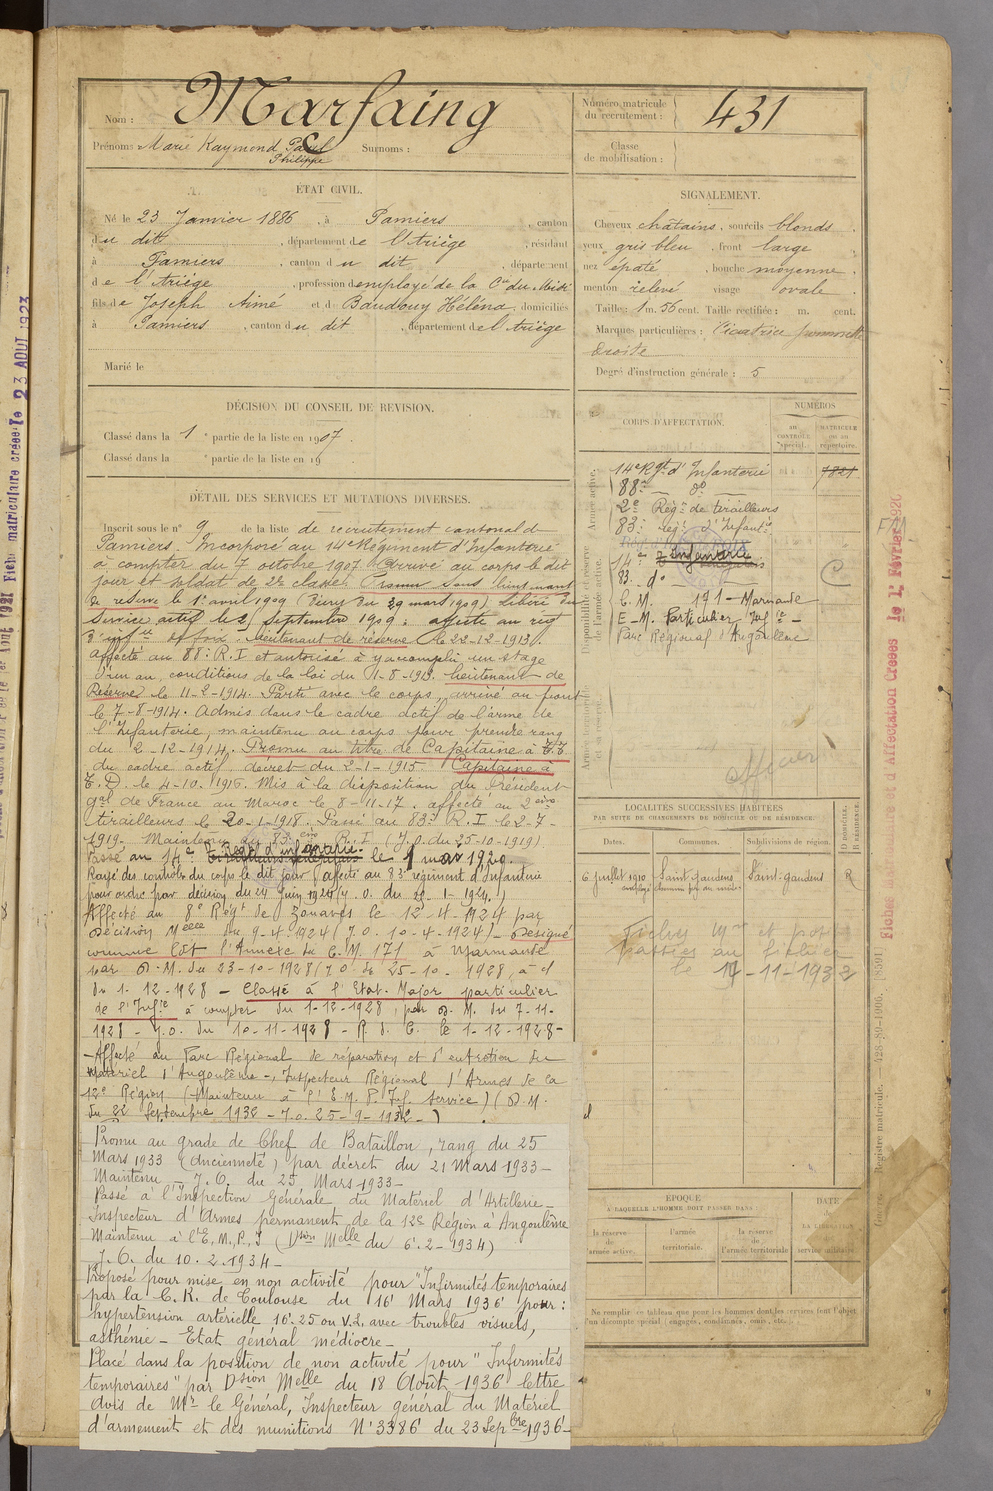 Nom : Marfaing
Prénoms : Marie Raymond Paul Surnoms :
Philippe
Numéro matricule
du recrutement : 431
Classe
de mobilisation :
ETAT CIVIL.
Né le 23 Janvier 1886, à Pamiers, canton
du dit, département de l'Ariège, résidant
à Pamiers, canton du dit, département
de l'Ariège, profession d'employé de la Cie du Midi
fils de Joseph Aimé et de Baudouy Héléna, domiciliés
à Pamiers, canton du dit, département de l'Ariège
Marié le
SIGNALEMENT.
Cheveux châtains, sourcils blonds
yeux gris bleu, front large
nez épaté, bouche moyenne
menton relevé visage ovale
Taille : 1 m. 56 cent. Taille rectifiée : m. cent.
Marques particulières : Cicatrice pommette
droite
Degré d'instruction générale : 5
DÉCISION DU CONSEIL DE REVISION.
Classé dans la 1 e partie de la liste en 1907.
Classé dans la e partie de la liste en 19
DÉTAIL DES SERVICES ET MUTATIONS DIVERSES.
Inscrit sous le n° 9 de la liste de recrutement cantonal de
Pamiers. Incorporé au 14e Régiment d'Infanterie
à compter du 7 octobre 1907. Arrivé au corps le dit
jour et soldat de 2e classe. Promu sous lieutenant
de réserve le 1er avril 1909 (Décret du 29 mars 1909) Libéré du
Service actif le septembre 1909. affecté au rég
d'infie Lieutenant de réserve le 22-12-1913.
Affecté au 88e R.I et autorisé à y accomplir un stage
d'un an, conditions de la loi du 11-8-1913. Lieutenant de
Réserve le 11-2-1914. Parti avec le corps, arrivé au front
le 7-8-1914. Admis dans le cadre actif de l'arme de
l'Infanterie, maintenu au corps pour prendre rang
du 2-12-1914. Promu au titre de Capitaine à T.T
du cadre actif décret du 2-1-1915. Capitaine à
T.D. le 4-10-1916. Mis à la disposition du Résident
gal de France au Maroc le 8-11-17. affecté au 2eme
tirailleurs le 20-1-1918. Passé au 83e R.I le 2-7-
1919. Maintenu au 83eme R.I (J.O. du 25-10-1919)
Passé au 14e Régt d'infanterie le 1 mai 1920.
Rayé des contrôles du corps le dit jour affecté au 83e régiment d'Infanterie
pour ordre par décision du 24 Juin 1924 (J.O. du 1-1924)
Affecté au 8e Régt de Zouaves le 12-4-1924 par
décision Melle du 9-4-1924 (J.O. 10-4-1924) - Désigné
comme Cdt l'Annexe du C.M. 171 à Marmande
par D.M. du 23-10-1928 (J.O. du 25-10-1928, à c/
du 1-12-1928 - Classé à l'Etat-Major particulier
de l'Infie à compter du 1-12-1928, par D.M. du 7-11-
1928 - J.O. du 10-11-1928 - R. d. C. le 1-12-1928-
-Affecté au Parc Régional de réparation et d'entretien du
Matériel d'Angoulême -, Inspecteur Régional d'Armes de la
12e Région (Maintenu à l'E.M.P. Inf. Service) (D.M.
du 22 Septembre 1932 - J.O. 25-9-1932-)
Promu au grade de Chef de Bataillon, rang du 25
Mars 1933 (Ancienneté) par décret du 21 Mars 1933-
Maintenu - J.O. du 25 Mars 1933-
Passé à l'Inspection Générale du Matériel d'Artillerie-
Inspecteur d'Armes permanent de la 12e Région à Angoulême
Maintenu à l'E.M.P.I (Dsion Melle du 6-2-1934)
J.O. du 10.2.1934-
Proposé pour mise en non activité pour "Infirmités temporaires
par la C.R. de Toulouse du 16 Mars 1936 pour :
hypertension artérielle 16.25 au V.L, avec troubles visuels,
asthénie - Etat général médiocre-
Placé dans la position de non activité pour "Infirmités
temporaires" par Dsion Melle du 18 Août 1936 lettre
avis de Mr le Général, Inspecteur général du Matériel
d'armement et des munitions N°3386 du 23 Sepbre 1936-
CORPS D'AFFECTATION.
NUMÉROS
AU CONTRÔLE spécial.
MATRICULE OU AU répertoire.
Armée active.
14e Rgt d'Infanterie 7821
88e - do -
2e Régt de tirailleurs
83e régt d'Infantie
Disponibilité et réserve de l'armée active.
14e Infanterie
83. do
C.M. 171 - Marmande
E-M. Particulier Infie -
Parc Régional d'Angoulême
C
officier
LOCALITÉS SUCCESSIVES HABITÉES
PAR SUITE DE CHANGEMENTS DE DOMICILE OU DE RÉSIDENCE.
Dates. Communes. Subdivisions de région. D DOMICILE. R RÉSIDENCE.
6 Juillet 1910 Saint-Gaudens Saint-Gaudens R
employé chemin fer du midi
Fiches Mle et
passées au fichier
le 17-11-1932
ÉPOQUE
A LAQUELLE L'HOMME DOIT PASSER DANS
la réserve de armée active.
l'armée territoriale.
la réserve de l'armée territoriale
DATE
de
LA LIBÉRATION
du
service militaire
Ne remplir ce tableau que pour les hommes dont les services font l'objet
d'un décompte spécial (engagés, condamnés, omis, etc.)
Registre matricule. - 428-89-1900. [8591]
Fiches Matricule et d'Affectation Créées le 1er Février 1920
Fiche matriculaire créée le 23 AOUT 1923